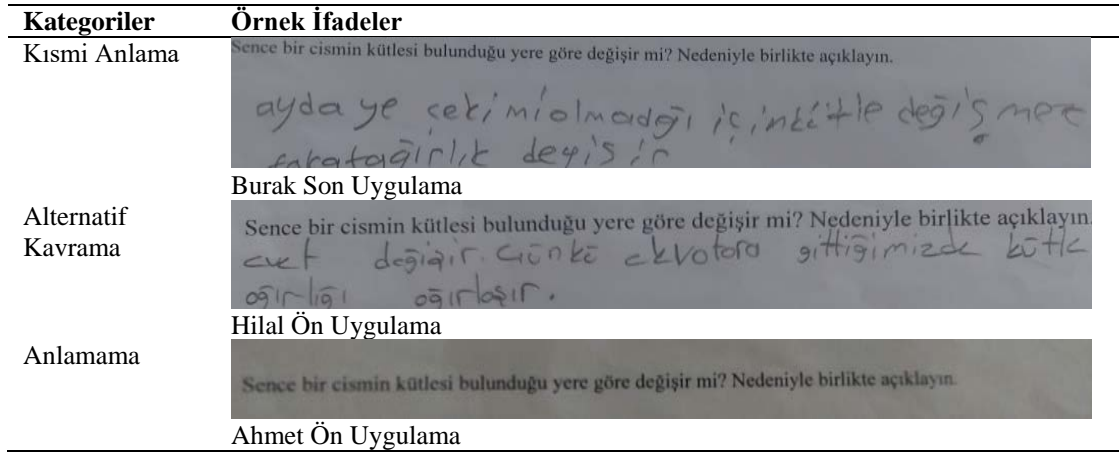 Kategoriler Örnek İfadeler
Kısmi Anlama
Sence bir cismin kütlesi bulunduğu yere göre değişir mi? Nedeniyle birlikte açıklayın.
ayda ye çekimi olmadğı için kütle değişmez
fakat ağırlık deyişir
Burak Son Uygulama
Alternatif
Kavrama
Sence bir cismin kütlesi bulunduğu yere göre değişir mi? Nedeniyle birlikte açıklayın.
evet değişir. Günkü ekvatora gittiğimizde kütle
ağırlığı ağırlaşır.
Hilal Ön Uygulama
Anlamama
Sence bir cismin kütlesi bulunduğu yere göre değişir mi? Nedeniyle birlikte açıklayın.
Ahmet Ön Uygulama